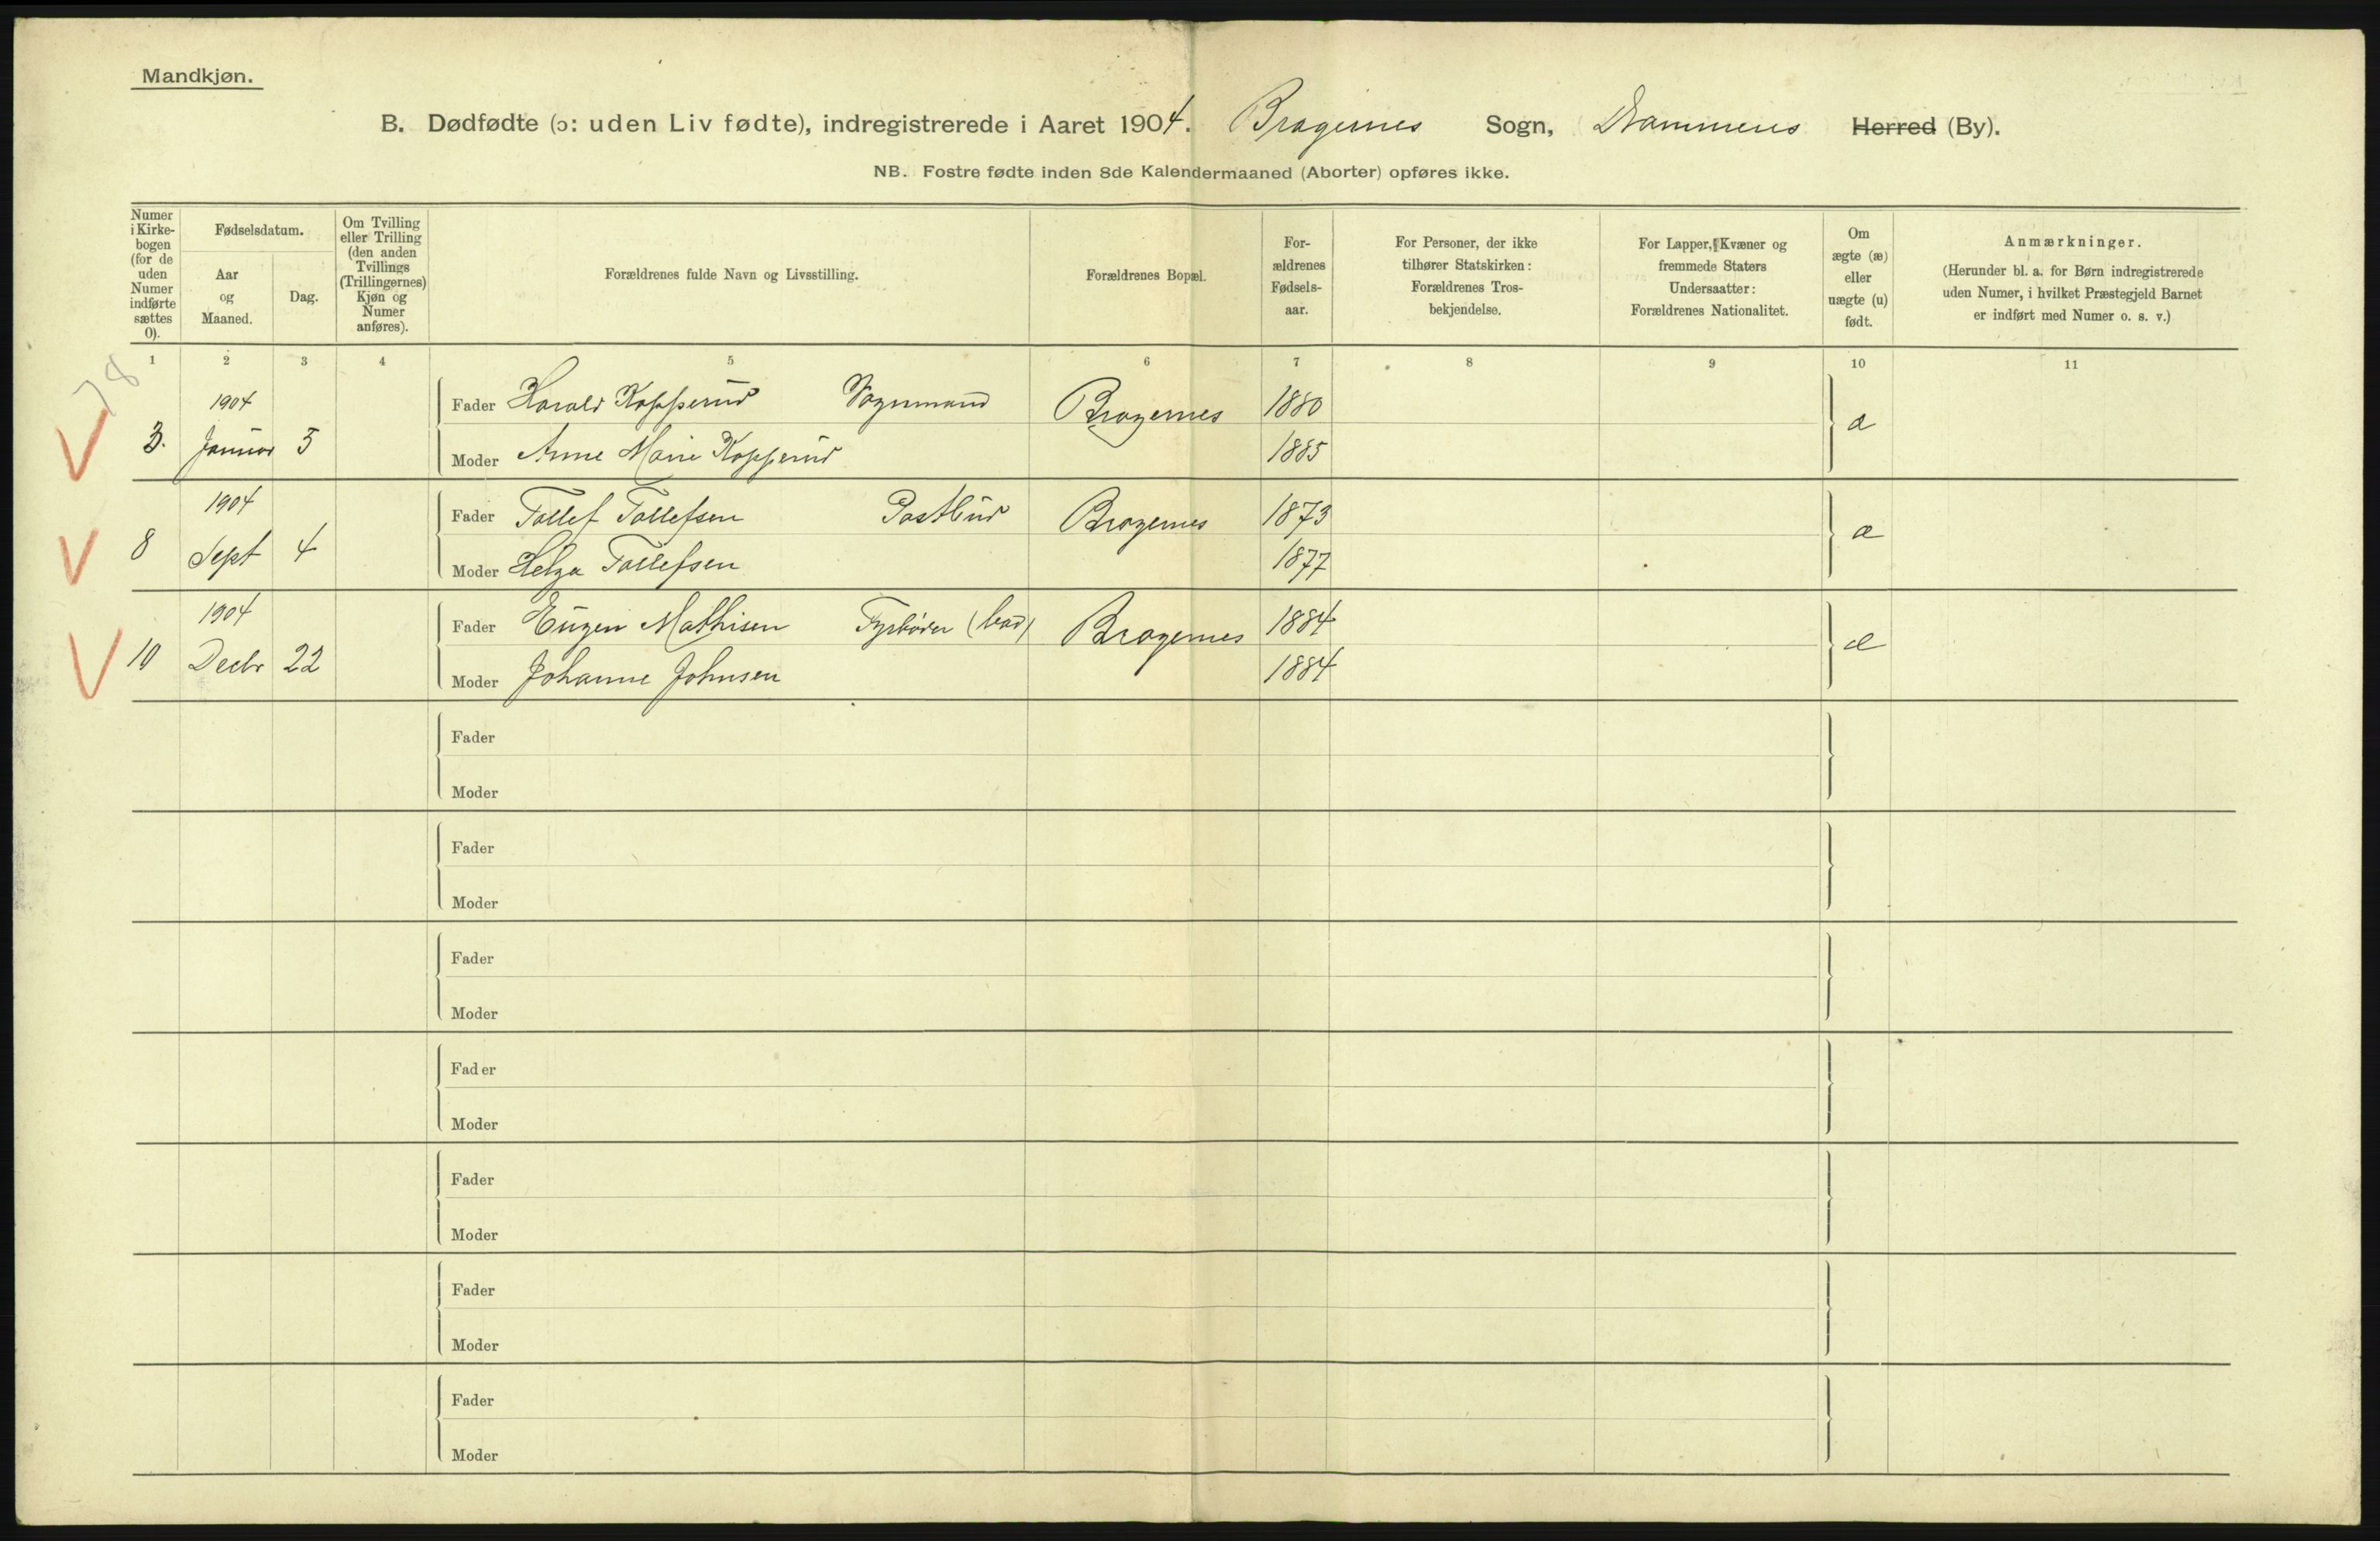 Mandkjøn.
B. Dødfødte (ɔ: uden Liv fødte), indregistrerede i Aaret 1904. Bragernes Sogn, Drammens Herred (By).
NB. Fostre fødte inden 8de Kalendermaaned (Aborter) opføres ikke.
Numer i Kirke-bogen (for de uden Numer indførte sættes 0).
Fødselsdatum.
Aar og Maaned.
Dag.
Om Tvilling eller Trilling (den anden Tvillings (Trillingernes) Kjøn og Numer anføres).
Forældrenes fulde Navn og Livsstilling.
Forældrenes Bopæl.
For-ældrenes Fødsels-aar.
For Personer, der ikke tilhører Statskirken: Forældrenes Tros-bekjendelse.
For Lapper, Kvæner og fremmede Staters Undersaatter: Forældrenes Nationalitet.
Om ægte (æ) eller uægte (u) født.
Anmærkninger.
(Herunder bl. a. for Børn indregistrerede uden Numer, i hvilket Præstegjeld Barnet er indført med Numer o. s. v.)
1 2 3 4 5 6 7 8 9 10 11
78
3. 1904 Januar 5 Fader Harald Kopperud Vognmand Bragernes 1880 æ
Moder Anne Marie Kopperud 1885
8 1904 Sept 4 Fader Tollef Tollefsen Postbud Bragernes 1873 æ
Moder Helga Tollefsen 1877
10 1904 Decbr 22 Fader Eugen Mathisen Fyrbøder Bragernes 1884 æ
Moder Johanne Johnsen 1884
Fader
Moder
Fader
Moder
Fader
Moder
Fader
Moder
Fader
Moder
Fader
Moder
Fader
Moder